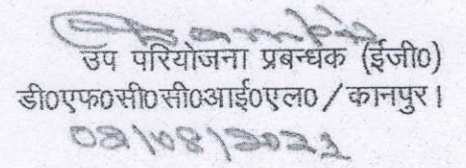 उप परियोजना प्रबन्धक (ईजी०)
डी०एफ०सी०सी०आई०एल० / कानपुर।
02/08/2021